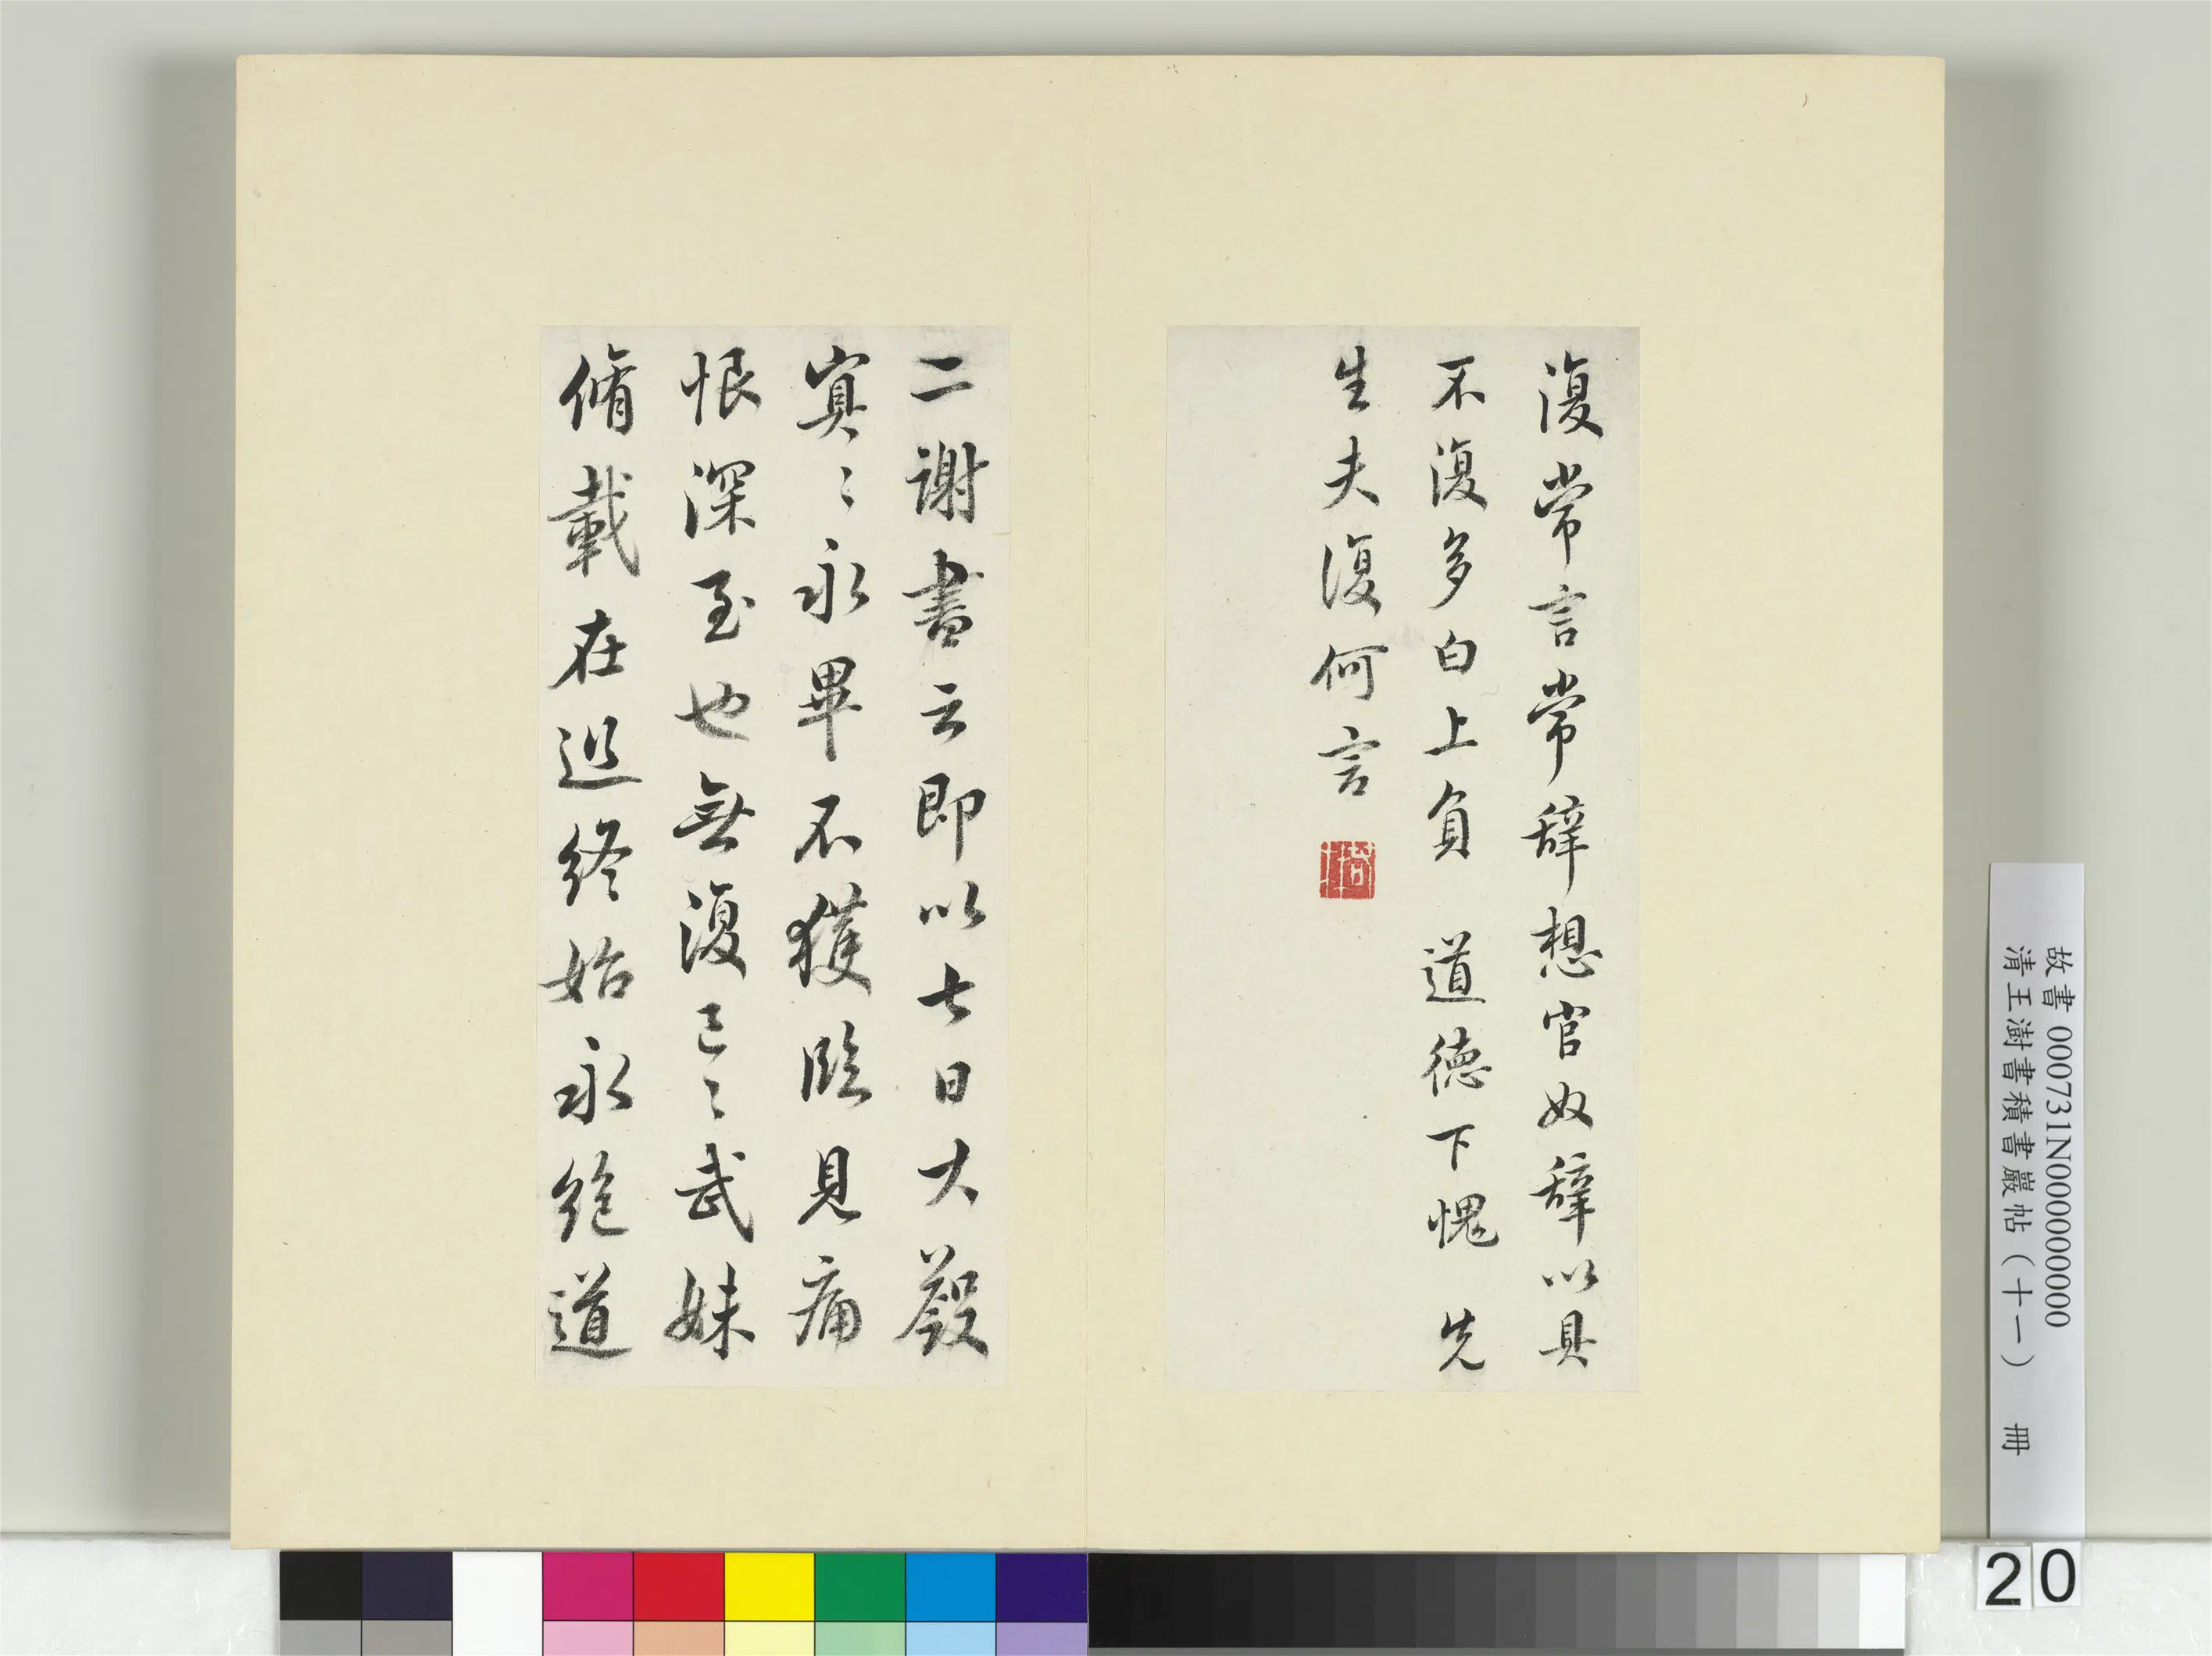 復常言常辭想官奴辭以具
不復多白上負 道德下愧 先
生夫復何言
二謝書云即以七日大斂
冥〻永畢不獲臨見痛
恨深至也無復已〻武妹
脩載在遐終始永絕道
故書 000731N000000000
清王澍書積書巖帖(十一) 冊
20